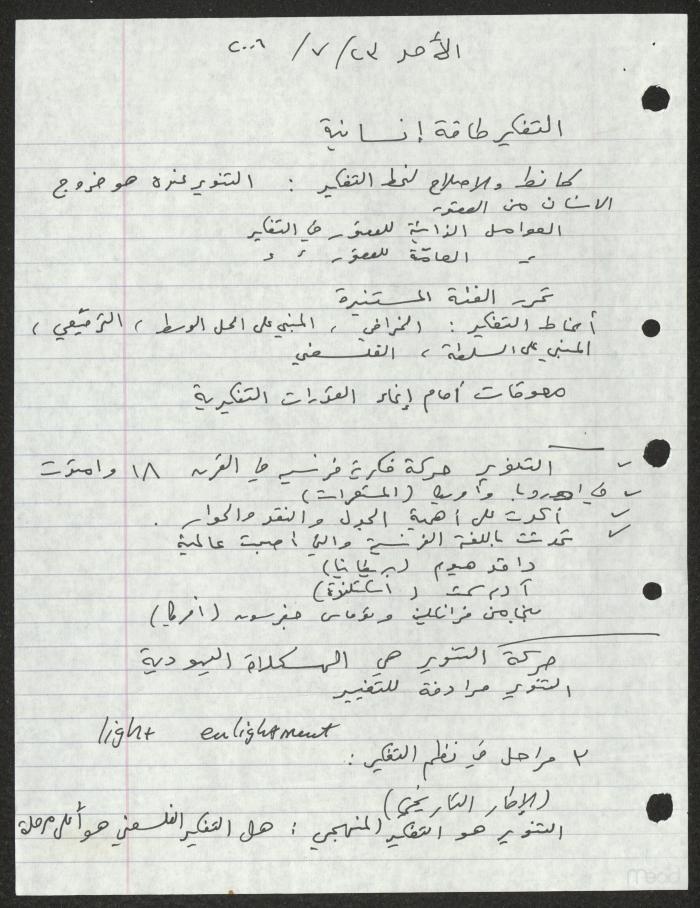 الأحد ٢٣/ ٧/ ٢٠٠٦
التفكير طاقة إنسانية
كانط والاصلاح لنمط التفكير : التنوير عنده هو خروج
الانسان من القصور
العوامل الذاتية للقصور في التفكير
= العامّة للقصور = =
تحرر الفئة المستنيرة
أنماط التفكير : الخرافي ، المبني على الحل الوسط ، الترقيعي ،
المبني على السلطة ، الفلسفي
معوقات أمام إنماء القدرات التفكيرية
✓ التنوير حركة فكرية فرنسية في القرن ١٨ وامتدت
✓ في اوروبا وأمريكا (المستعمرات)
✓ أكدت على أهمية الجدل والنقد والحوار .
✓ تحدثت باللغة الفرنسية والتي أصبحت عالمية
دافد هيوم (بريطانيا)
آدم سمث (اسكتلندة)
بنجامين فرانكلين وتوماس جفرسون (أمريكا)
حركة التنوير هي الهسكلاة اليهودية
التنوير مرادفة للتغيير
light enlightment
٣ مراحل في نظم التفكير :
(الإطار التاريخي)
التنوير هو التفكير المنهجي : هل التفكير الفلسفي هو أعلى مرحلة
mead